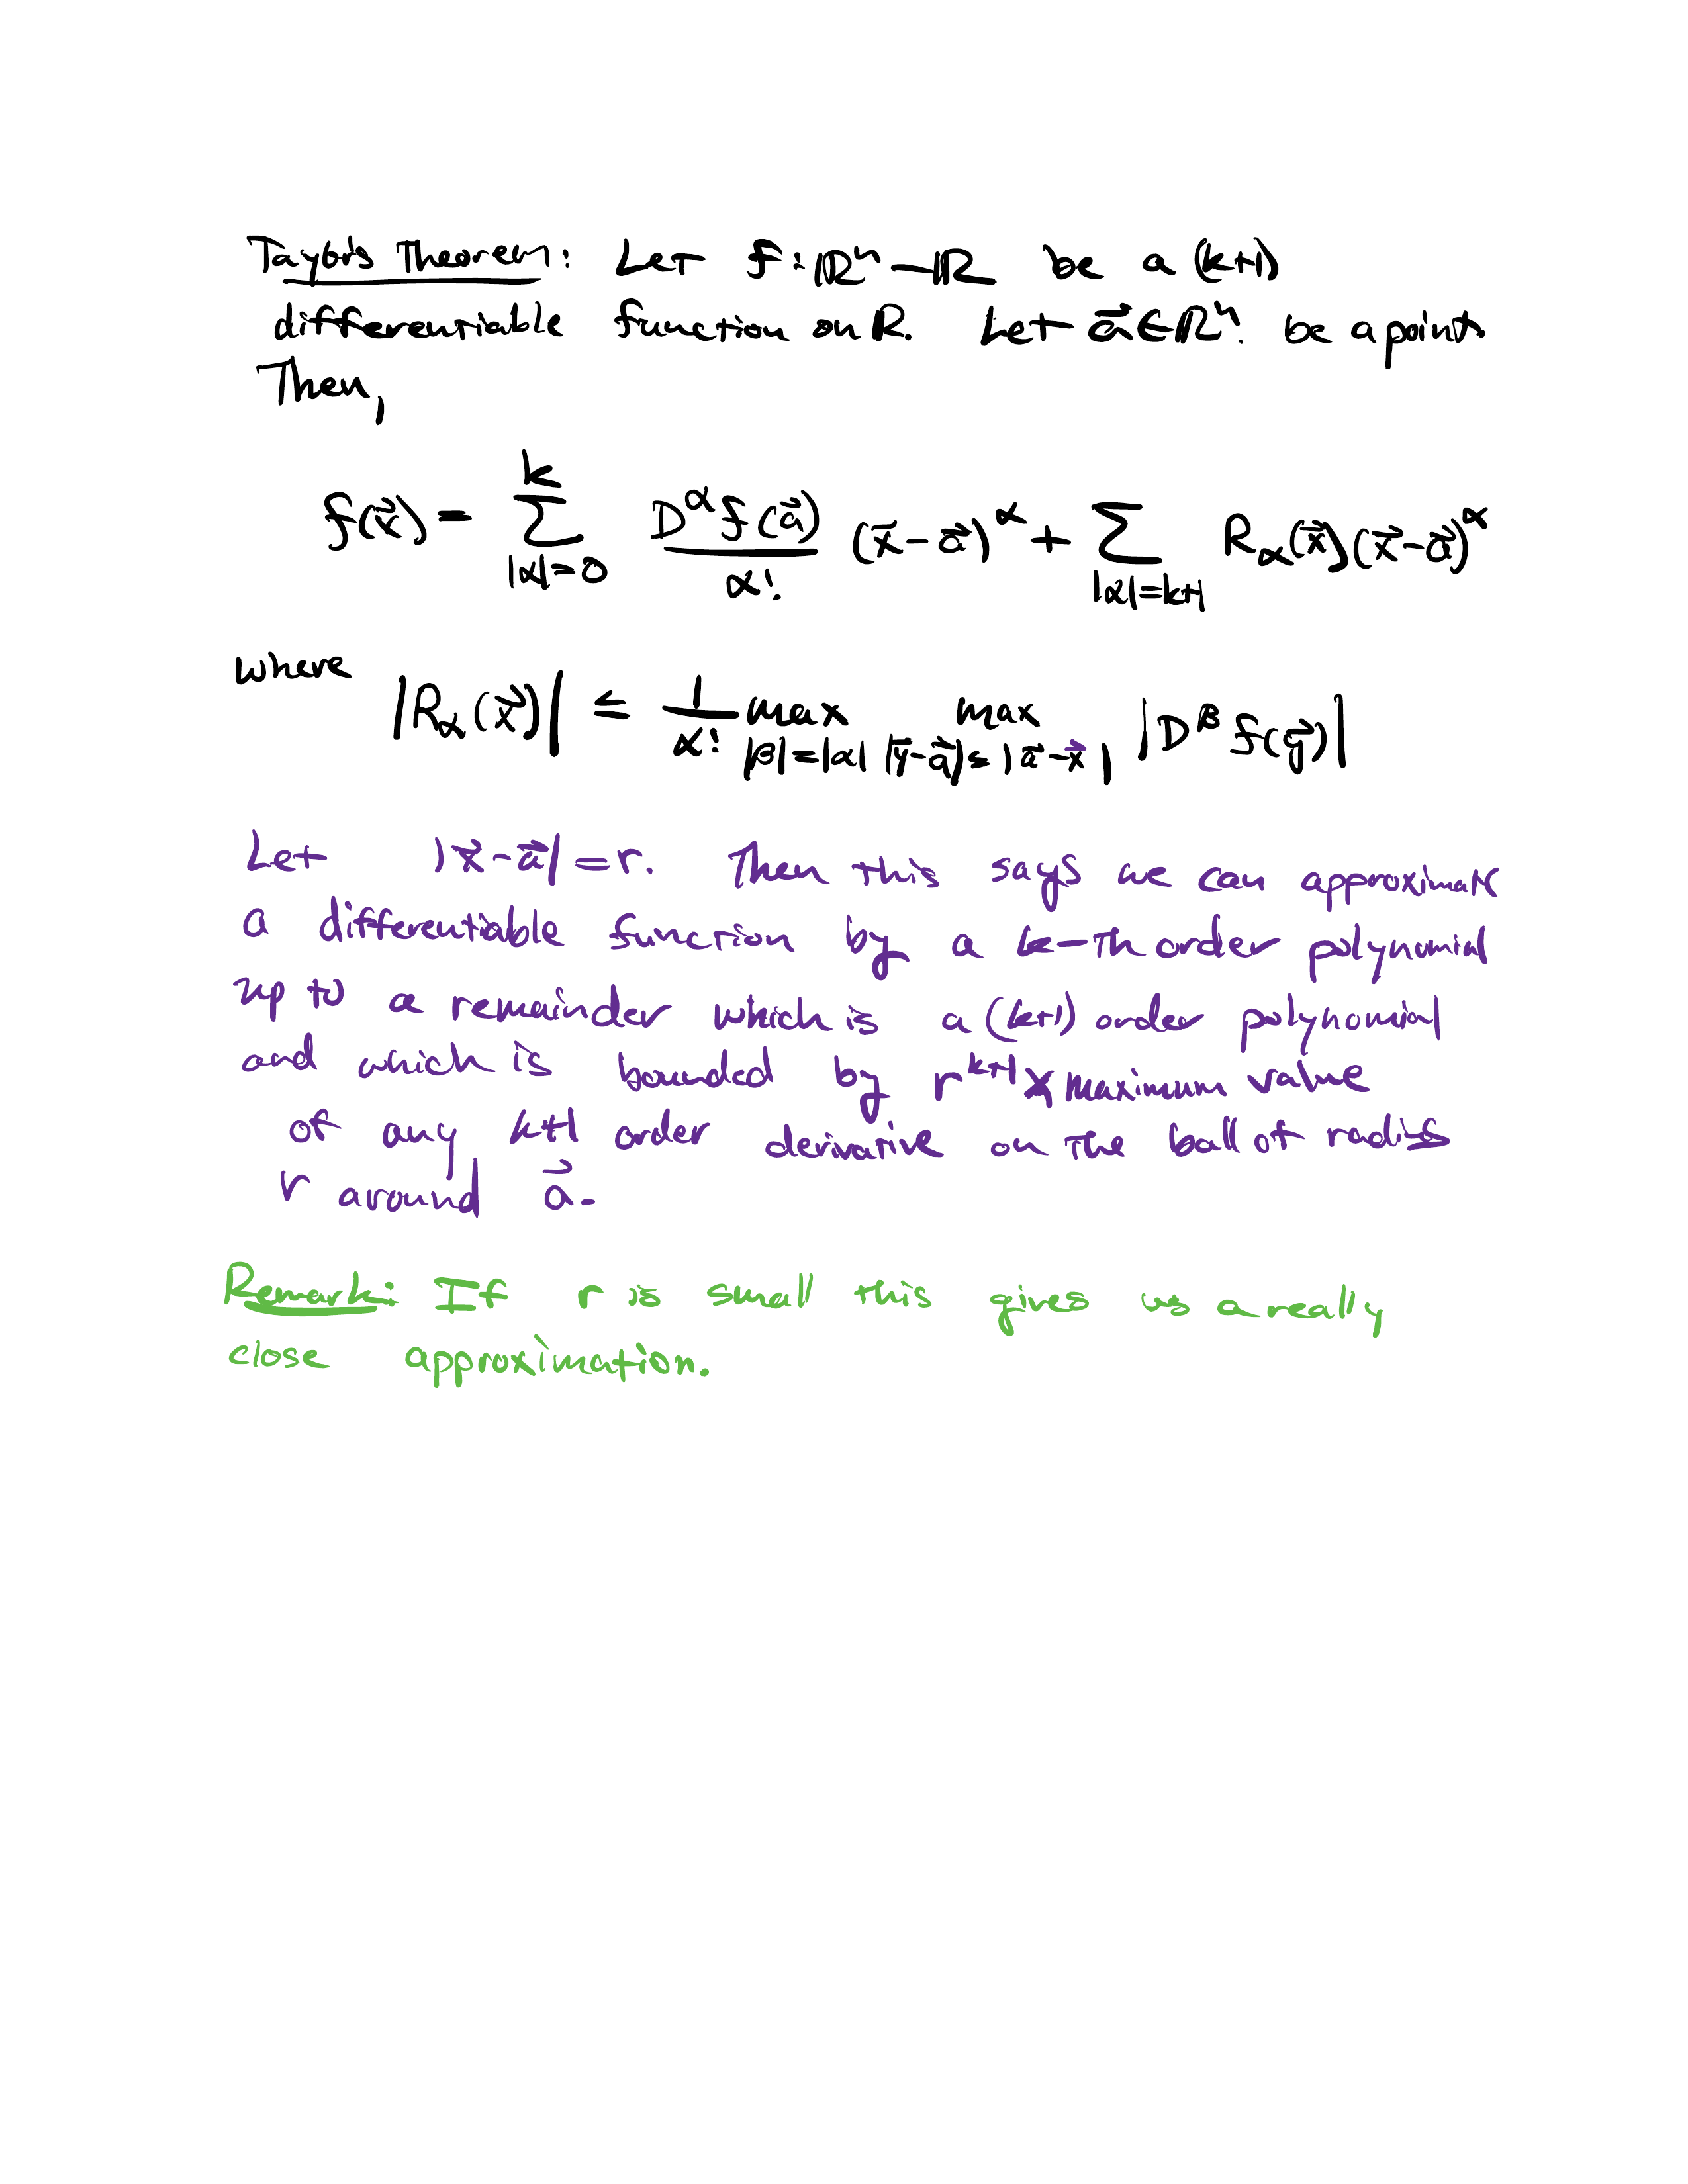 Taylor's Theorem: Let f:ℝⁿ→ℝ be a (k+1)
differentiable function on ℝ. Let a⃗∈ℝⁿ. be a point.
Then,
f(x⃗) = ∑_{|α|=0}^{k} D^α f(a⃗)/α! (x⃗-a⃗)^α + ∑_{|α|=k+1} R_α(x⃗)(x⃗-a⃗)^α
where
|R_α(x⃗)| ≤ 1/α! max_{|β|=|α|} max_{|y⃗-a⃗|≤|a⃗-x⃗|} |D^β f(y⃗)|
Let |x⃗-a⃗|=r. Then this says we can approximate
a differentiable function by a k-th order polynomial
up to a remainder which is a (k+1) order polynomial
and which is bounded by r^{k+1} × maximum value
of any k+1 order derivative on the ball of radius
r around a⃗.
Remark: If r is small this gives us a really
close approximation.